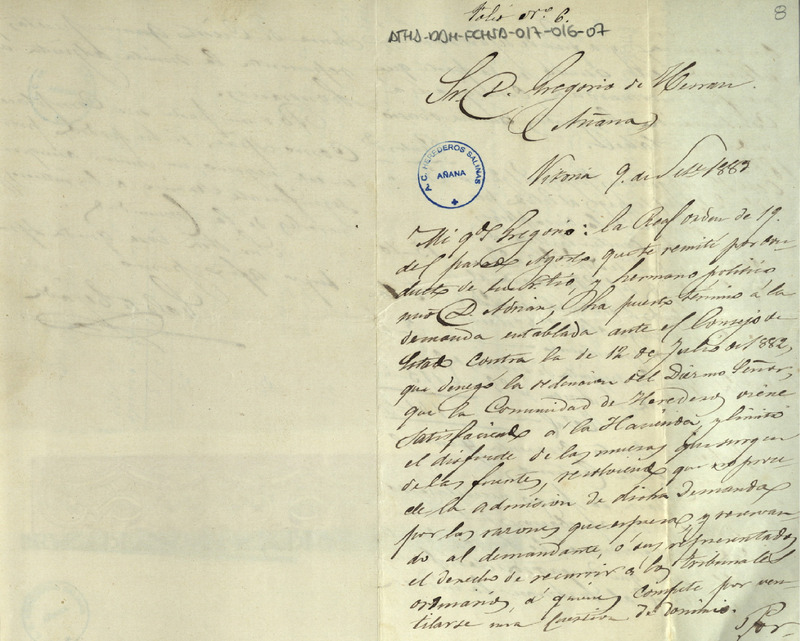 Folio nº. 6.
8
ATHA-DAH-FCHSA-017-016-07
Sr. D. Gregorio de Herran.
Añana
A. C. HEREDEROS SALINAS
AÑANA
Vitoria 9. de 1883
Mi qdº Gregorio: la Real orden de 19.
del pasado Agosto, que te remiti por con-
ducto de tu tio, y hermano politico
mio D. Adrian, ha puesto termino á la
demanda entablada ante el Consejo de
Estado contra la de 12 de Julio de 1882,
que denegó la redencion del Diezmo Señor,
que la Comunidad de Herederos viene
satisfaciendo á la Hacienda, y limitó
el disfrute de las mueras que surgen
de las fuentes, resolviendo que es improce-
de la admision de dicha demanda
por las razones que espresa, y reservan
do al demandante, ó sus representados
el derecho de recurrir á los tribunales
ordinarios, á quienes compete por ven-
tilarse una cuestion de dominio.
Por